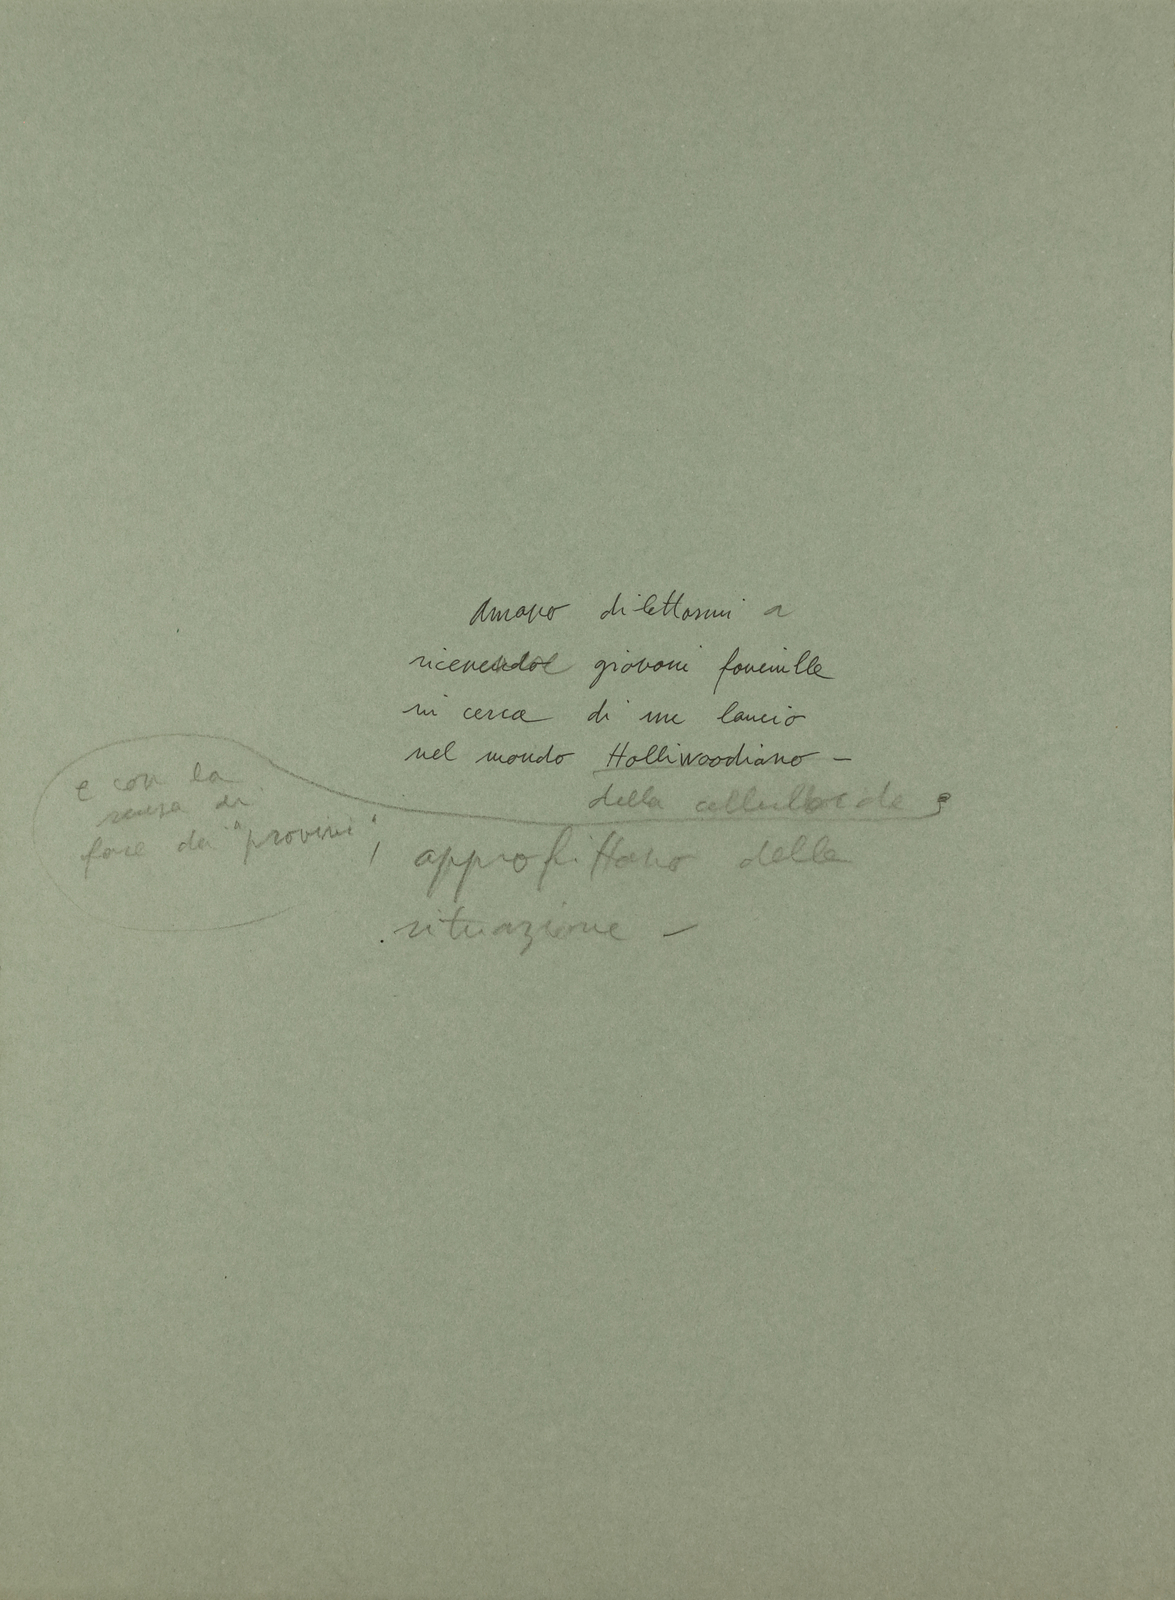 Amano dilettarsi a
ricevendo giovani fanciulle
in cerca di un lancio
nel mondo Holliwoodiano –
della celluloide
e con la
scusa di
fare dei "provini",
approfittano della
situazione –